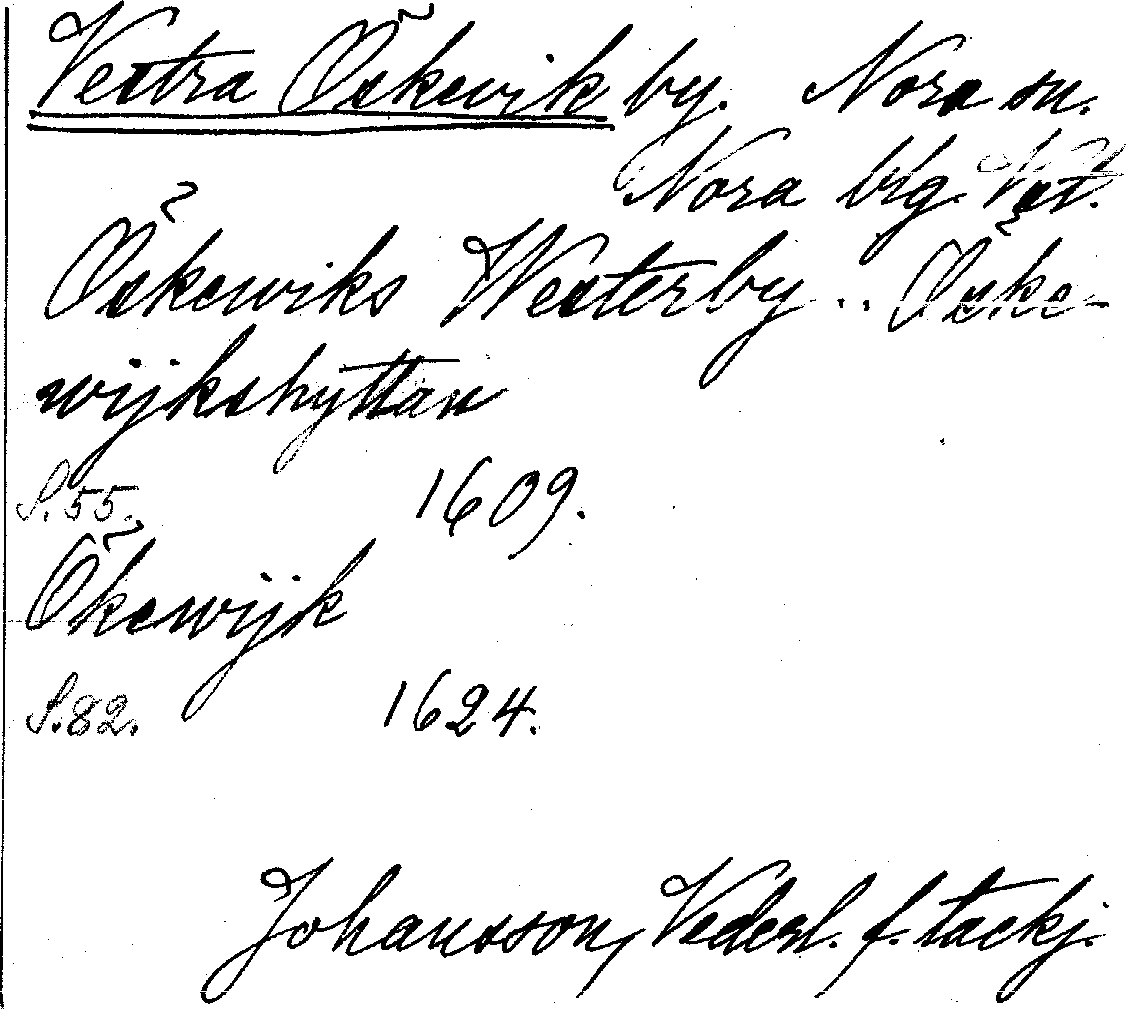 Vestra Öskevik by. Nora sn.
Nora blg. Vst.
Öskewiks Westerby .. Öske-
wijkshyttan
S. 55. 1609.
Ökewijk
S. 82. 1624.
Johansson, Vederl. f. tackj.